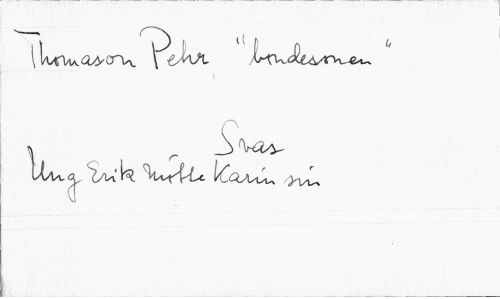 Thomason Pehr, "bondesonen"
Svas
Ung Erik mötte Karin sin